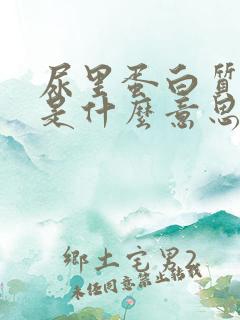 尿里蛋白質
是什麼意思
鄉土宅男2
未经同意禁止转载